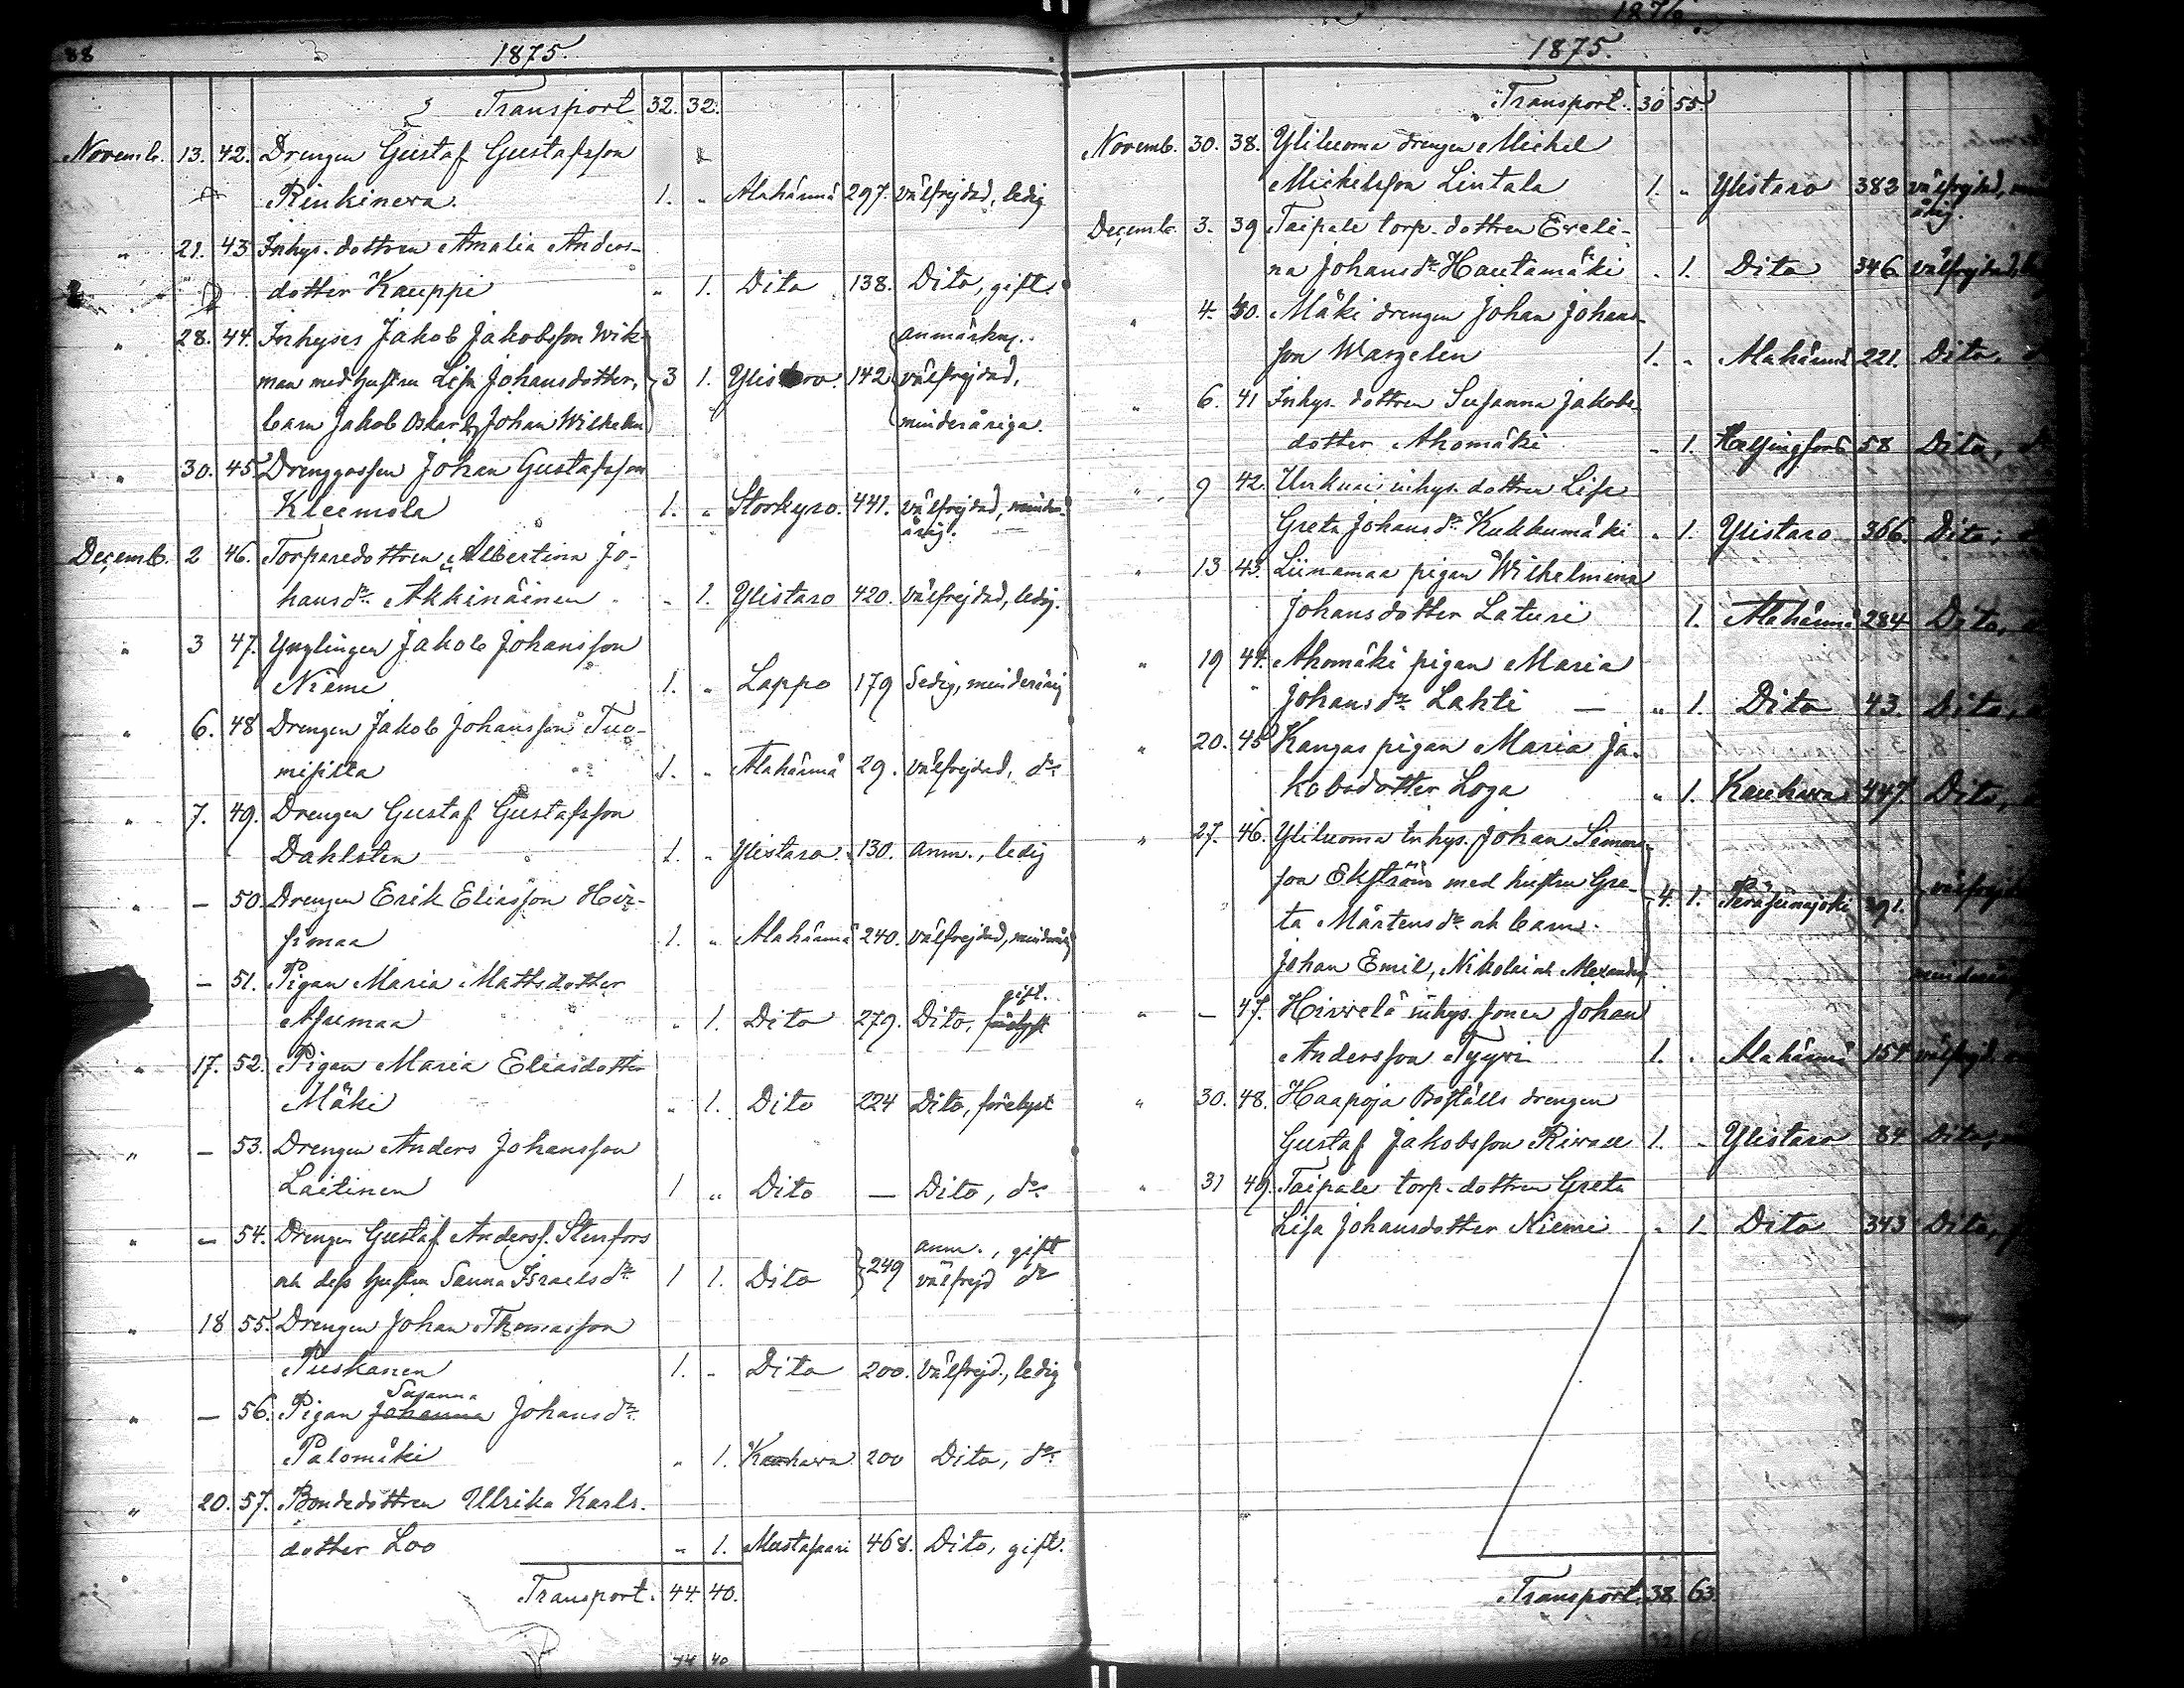 88
1875.
Transport 32. 32.
Novemb. 13. 42. Drengen Gustaf Gustafsson
Rinkineva. 1. " Alahärmä 297. välfrejdad, ledig
" 21. 43 Inhys. dottren Amalia Anders-
dotter Kauppi " 1. Dito 138. Dito, gift.
" 28. 44. Inhyses Jakob Jakobsson Wik-
anmärkn.
man med hustru Lisa Johansdotter, 3 1. Ylistaro. 142 välfrejdad,
barn Jakob Oskar & Johan Wilhelm minderåriga.
" 30. 45 Drenggossen Johan Gustafsson
Kleemola 1. " Storkyro. 441. välfrejdad, minder-
årig.
Decemb. 2 46. Torparedottren Albertina Jo-
hansdr. Akkinäinen " 1. Ylistaro 420. välfrejdad, ledig.
" 3 47. Ynglingen Jakob Johansson
Niemi 1. " Lappo 179 Sedig, minderårig
" 6. 48 Drengen Jakob Johansson Tuo-
misilta 1. " Alahärmä 29. välfrejdad, do
" 7. 49. Drengen Gustaf Gustafsson
Dahlsten 1. " Ylistaro. 130. anm., ledig
" — 50. Drengen Erik Eliasson Hir-
simaa 1. " Alahärmä 240. välfrejdad, minderårig
— 51. Pigan Maria Mattsdotter
gift.
Asumaa " 1. Dito 279. Dito, förelyst
" 17. 52. Pigan Maria Eliasdotter
Mäki " 1. Dito 224 Dito, förelyst
" — 53. Drengen Anders Johansson
Laitinen 1 " Dito — Dito, do
" — 54. Drengen Gustaf Anderss. Stenfors
anm., gift
och dess hustru Sanna Israelsdr. 1 1. Dito 249 välfrejd do
" 18 55. Drengen Johan Thomasson
Puskanen 1. " Dito 200. välfrejd., ledig
Susanna
" — 56. Pigan Johanna Johansdr.
Palomäki " 1. Kauhava 200 Dito, do
" 20. 57. Bondedottren Ulrika Karls-
dotter Loo " 1. Mustasaari 468. Dito, gift.
Transport. 44. 40.
44 40
1876.
1875.
Transport. 30 55.
Novemb. 30. 38. Yliluoma drengen Michel
Michelsson Lintala 1. " Ylistaro 383 välfrejdad,
årig.
Decemb. 3. 39 Taipale torp. dottren Eveli-
na Johansdr. Hautamäki " 1. Dito 346. välfrejdad,
" 4. 40. Mäki drengen Johan Johans-
son Wargelin 1. " Alahärmä 221. Dito,
" 6. 41 Inhys. dottren Susanna Jakobs-
dotter Ahomäki " 1. Helsingfors 58 Dito,
" 9 42. Unkuri inhys. dottren Lisa
Greta Johansdr. Kukkumäki " 1. Ylistaro 366. Dito,
" 13 43. Liinamaa pigan Wilhelmina
Johansdotter Laturi 1. Alahärmä 284 Dito,
" 19 44. Ahomäki pigan Maria
Johansdr. Lahti — " 1. Dito 43. Dito,
" 20. 45 Kangas pigan Maria Ja-
kobsdotter Loga " 1. Kauhava 447. Dito,
" 27. 46. Yliluoma inhys. Johan Simons-
son Ekström med hustru Gre- 4. 1. Peräseinäjoki 391. välfrejdad
ta Mårtensdr. och barn
Johan Emil, Nikolai och Alexander minderårig
" — 47. Hirvelä inhys. sonen Johan
Andersson Tyyri 1. " Alahärmä 154 välfrejd.
" 30. 48. Haapoja Boställs drengen
Gustaf Jakobsson Rivall 1. " Ylistaro 84 Dito,
" 31 49. Taipale torp. dottren Greta
Lisa Johansdotter Niemi " 1 Dito 343 Dito,
Transport. 38 63